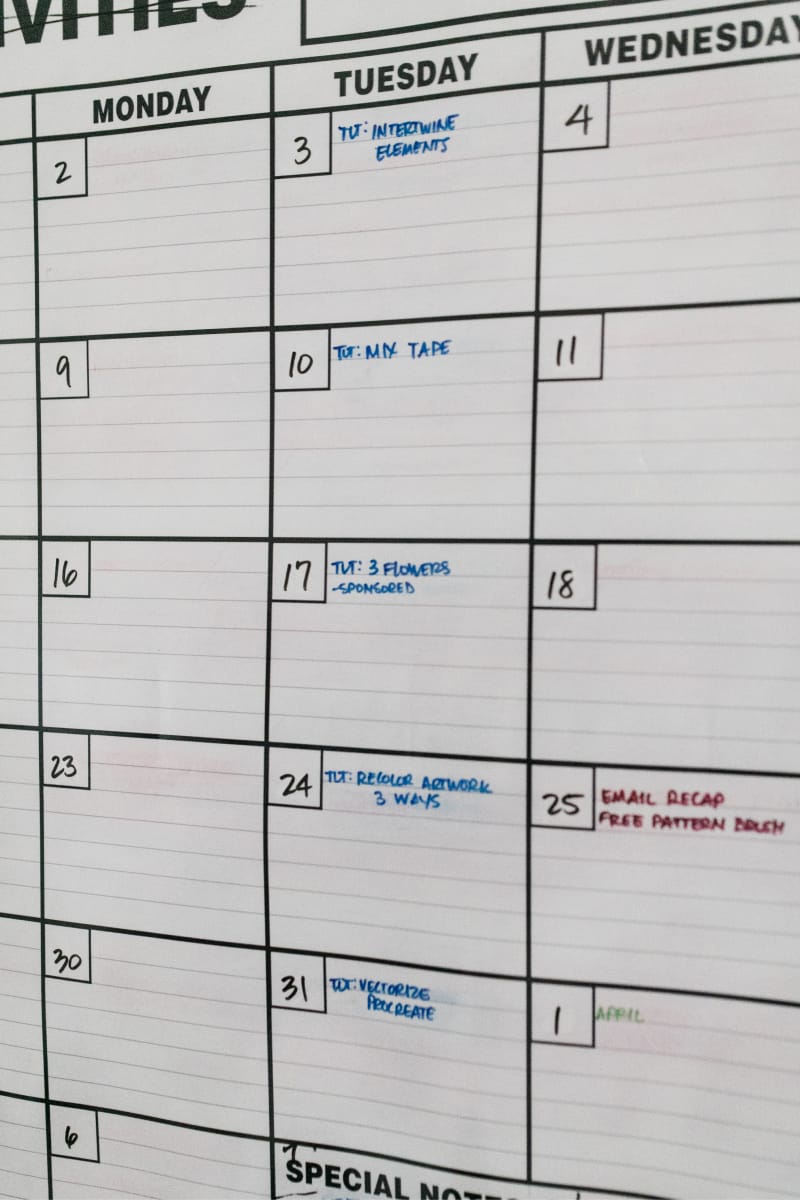 VITIES
MONDAY
TUESDAY
WEDNESDAY
2
3
TUT: INTERTWINE
ELEMENTS
4
9
10
TUT: MIX TAPE
11
16
17
TUT: 3 FLOWERS
-SPONSORED
18
23
24
TUT: RECOLOR ARTWORK
3 WAYS
25
EMAIL RECAP
FREE PATTERN
30
31
TUT: VECTORIZE
PROCREATE
1
APRIL
6
SPECIAL NOTE